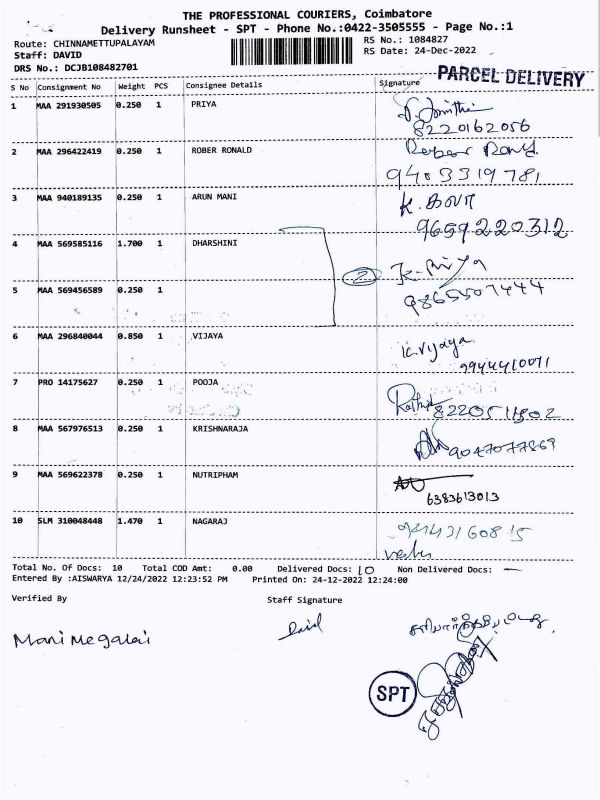 THE PROFESSIONAL COURIERS, Coimbatore
Delivery Runsheet - SPT - Phone No.:0422-3505555 - Page No.:1
Route: CHINNAMETTUPALAYAM RS No.: 1084827
Staff: DAVID RS Date: 24-Dec-2022
DRS No.: DCJB108482701
PARCEL DELIVERY
S No Consignment No Weight PCS Consignee Details Signature
1 MAA 291930505 0.250 1 PRIYA
8220162056
2 MAA 296422419 0.250 1 ROBER RONALD
9403319781
3 MAA 940189135 0.250 1 ARUN MANI K.
9659220312
4 MAA 569585116 1.700 1 DHARSHINI
2 K. Priya
5 MAA 569456589 0.250 1 9865507444
6 MAA 296840044 0.850 1 VIJAYA K.Vijaya
9944410071
7 PRO 14175627 0.250 1 POOJA
8 MAA 567976513 0.250 1 KRISHNARAJA
9047077869
9 MAA 569622378 0.250 1 NUTRIPHAM
6383613013
10 SLM 310048448 1.470 1 NAGARAJ
Total No. Of Docs: 10 Total COD Amt: 0.00 Delivered Docs: 10 Non Delivered Docs: —
Entered By :AISWARYA 12/24/2022 12:23:52 PM Printed On: 24-12-2022 12:24:00
Verified By Staff Signature
Mani Megalai David
SPT